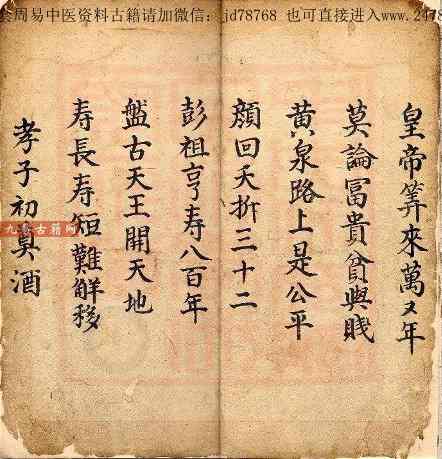 套周易中医资料古籍请加微信：jd78768 也可直接进入www.2478
皇帝筭來萬又年
莫論冨貴貧與賎
黄泉路上是公平
顔回夭折三十二
彭祖亨寿八百年
盤古天王開天地
寿長寿短難解移
孝子初奠酒
九鼎古籍网